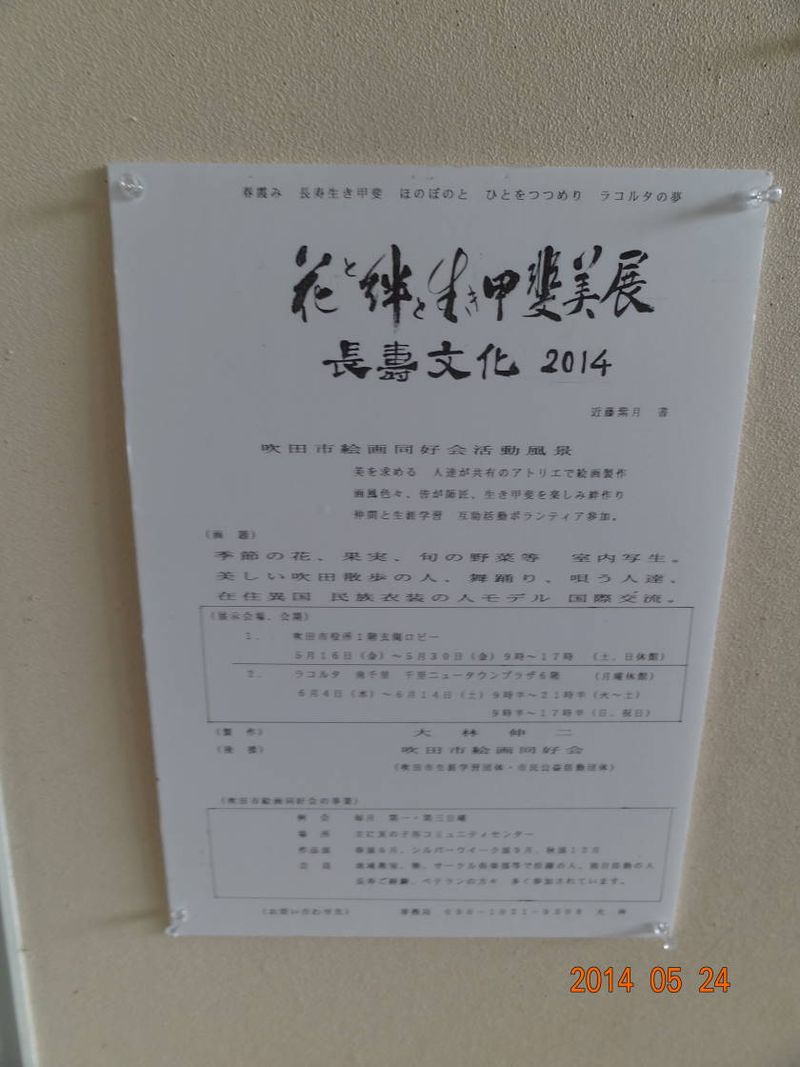 春霞み 長寿生き甲斐 ほのぼのと ひとをつつめり ラコルタの夢
花と絆と生き甲斐美展
長壽文化 2014
近藤紫月 書
吹田市絵画同好会活動風景
美を求める 人達が共有のアトリエで絵画製作
画風色々、皆が師匠、生き甲斐を楽しみ絆作り
仲間と生涯学習 互助活動ボランティア参加。
(画 題)
季節の花、果実、旬の野菜等 室内写生。
美しい吹田散歩の人、舞踊り、唄う人達、
在住異国 民族衣装の人モデル 国際交流。
(展示会場、会期)
1. 吹田市役所1階玄関ロビー
5月16日(金)~5月30日(金)9時~17時 (土、日休館)
2. ラコルタ 南千里 千里ニュータウンプラザ6階 (月曜休館)
6月4日(水)~6月14日(土)9時半~21時半(火~土)
9時半~17時半(日、祝日)
(製 作) 大 林 伸 二
(後 援) 吹田市絵画同好会
(吹田市生涯学習団体・市民公益活動団体)
(吹田市絵画同好会の事業)
例 会 毎月 第一・第三日曜
場 所 主に亥の子谷コミュニティセンター
作品展 春展6月、シルバーウイーク展9月、秋展12月
会 員
長寿ご経験、ベテランの方々 多く参加されています。
(お問い合わせ先) 事務局
2014 05 24